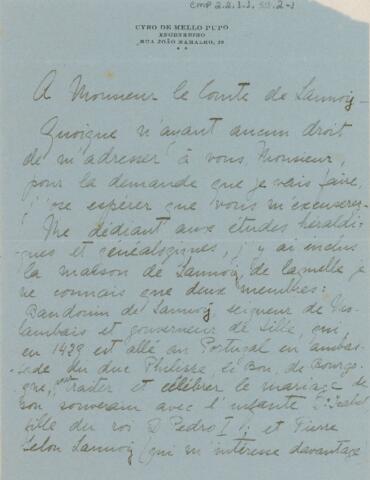 CMP 2.2.1.1. 50.2-1
CYRO DE MELLO PUPO
ENGENHEIRO
RUA JOÃO RAMALHO, 20
A Monsieur le Comte de Lannoy-
Quoique n'ayant aucun droit
de m'adresser à vous, Monsieur,
pour la demande que je vais faire,
j'ose espérer que vous m'excuserez-
Me dédiant aux études héraldi-
ques et généalogiques, j'y ai enclus
la maison de Lannoy, de laquelle je
ne connais que deux membres:
Baudouin de Lannoy, seigneur de
lambais et gouverneur de Lille, qui
en 1429 est allé au Portugal en ambas-
sade du duc Philippe, le Bon, de Bourgo-
gne, traiter et célébrer le mariage de
son souverain avec l'infante D. Isabel
fille du roi D. Pedro I; et Pierre
Selon Lannoy (qui m'intéresse davantage)